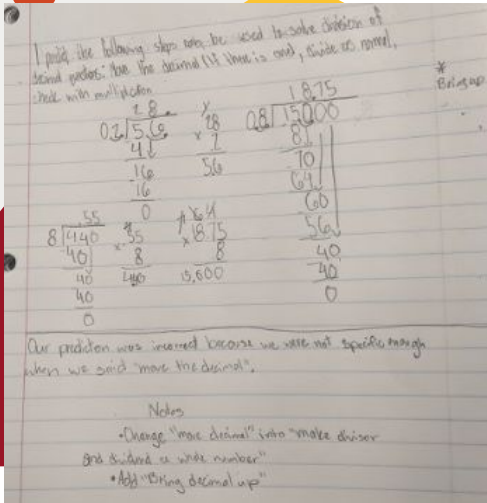 I predict the following steps can be used to solve division of
decimal : Move the decimal (if there is one), divide as normal,
check with multiplication
*
Bring up
28.
0.2 5.6.
4
16
16
0
28
x 2
56
18.75
0.8 150.00
8
70
64
60
56
40
40
0
55
8 440
40
40
40
0
55
x 8
440
1875
x 8
15,000
Our prediction was incorrect because we were not specific enough
when we said "move the decimal".
Notes
•Change "move decimal" into "make divisor
and dividend a whole number"
•Add "Bring decimal up"